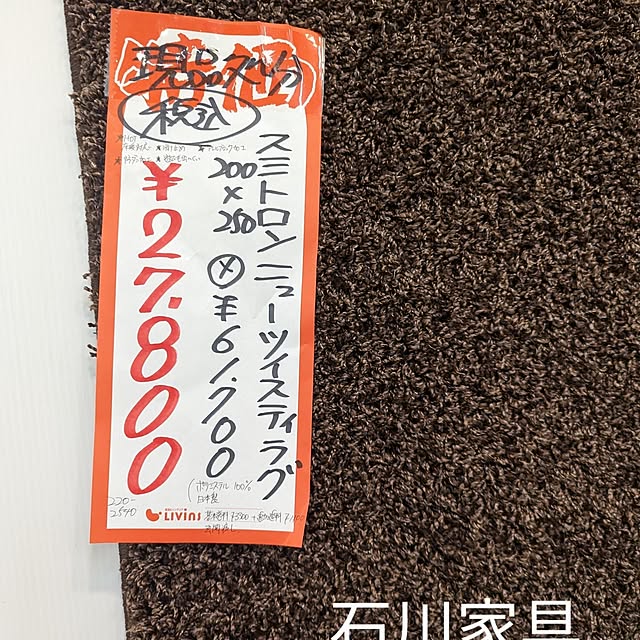 現品限り
税込
スミトロン ニューツイスティラグ
200×250
㋱¥61,700
¥27,800
ポリエステル 100%
日本製
220-
2540
LIVINS
石川家具